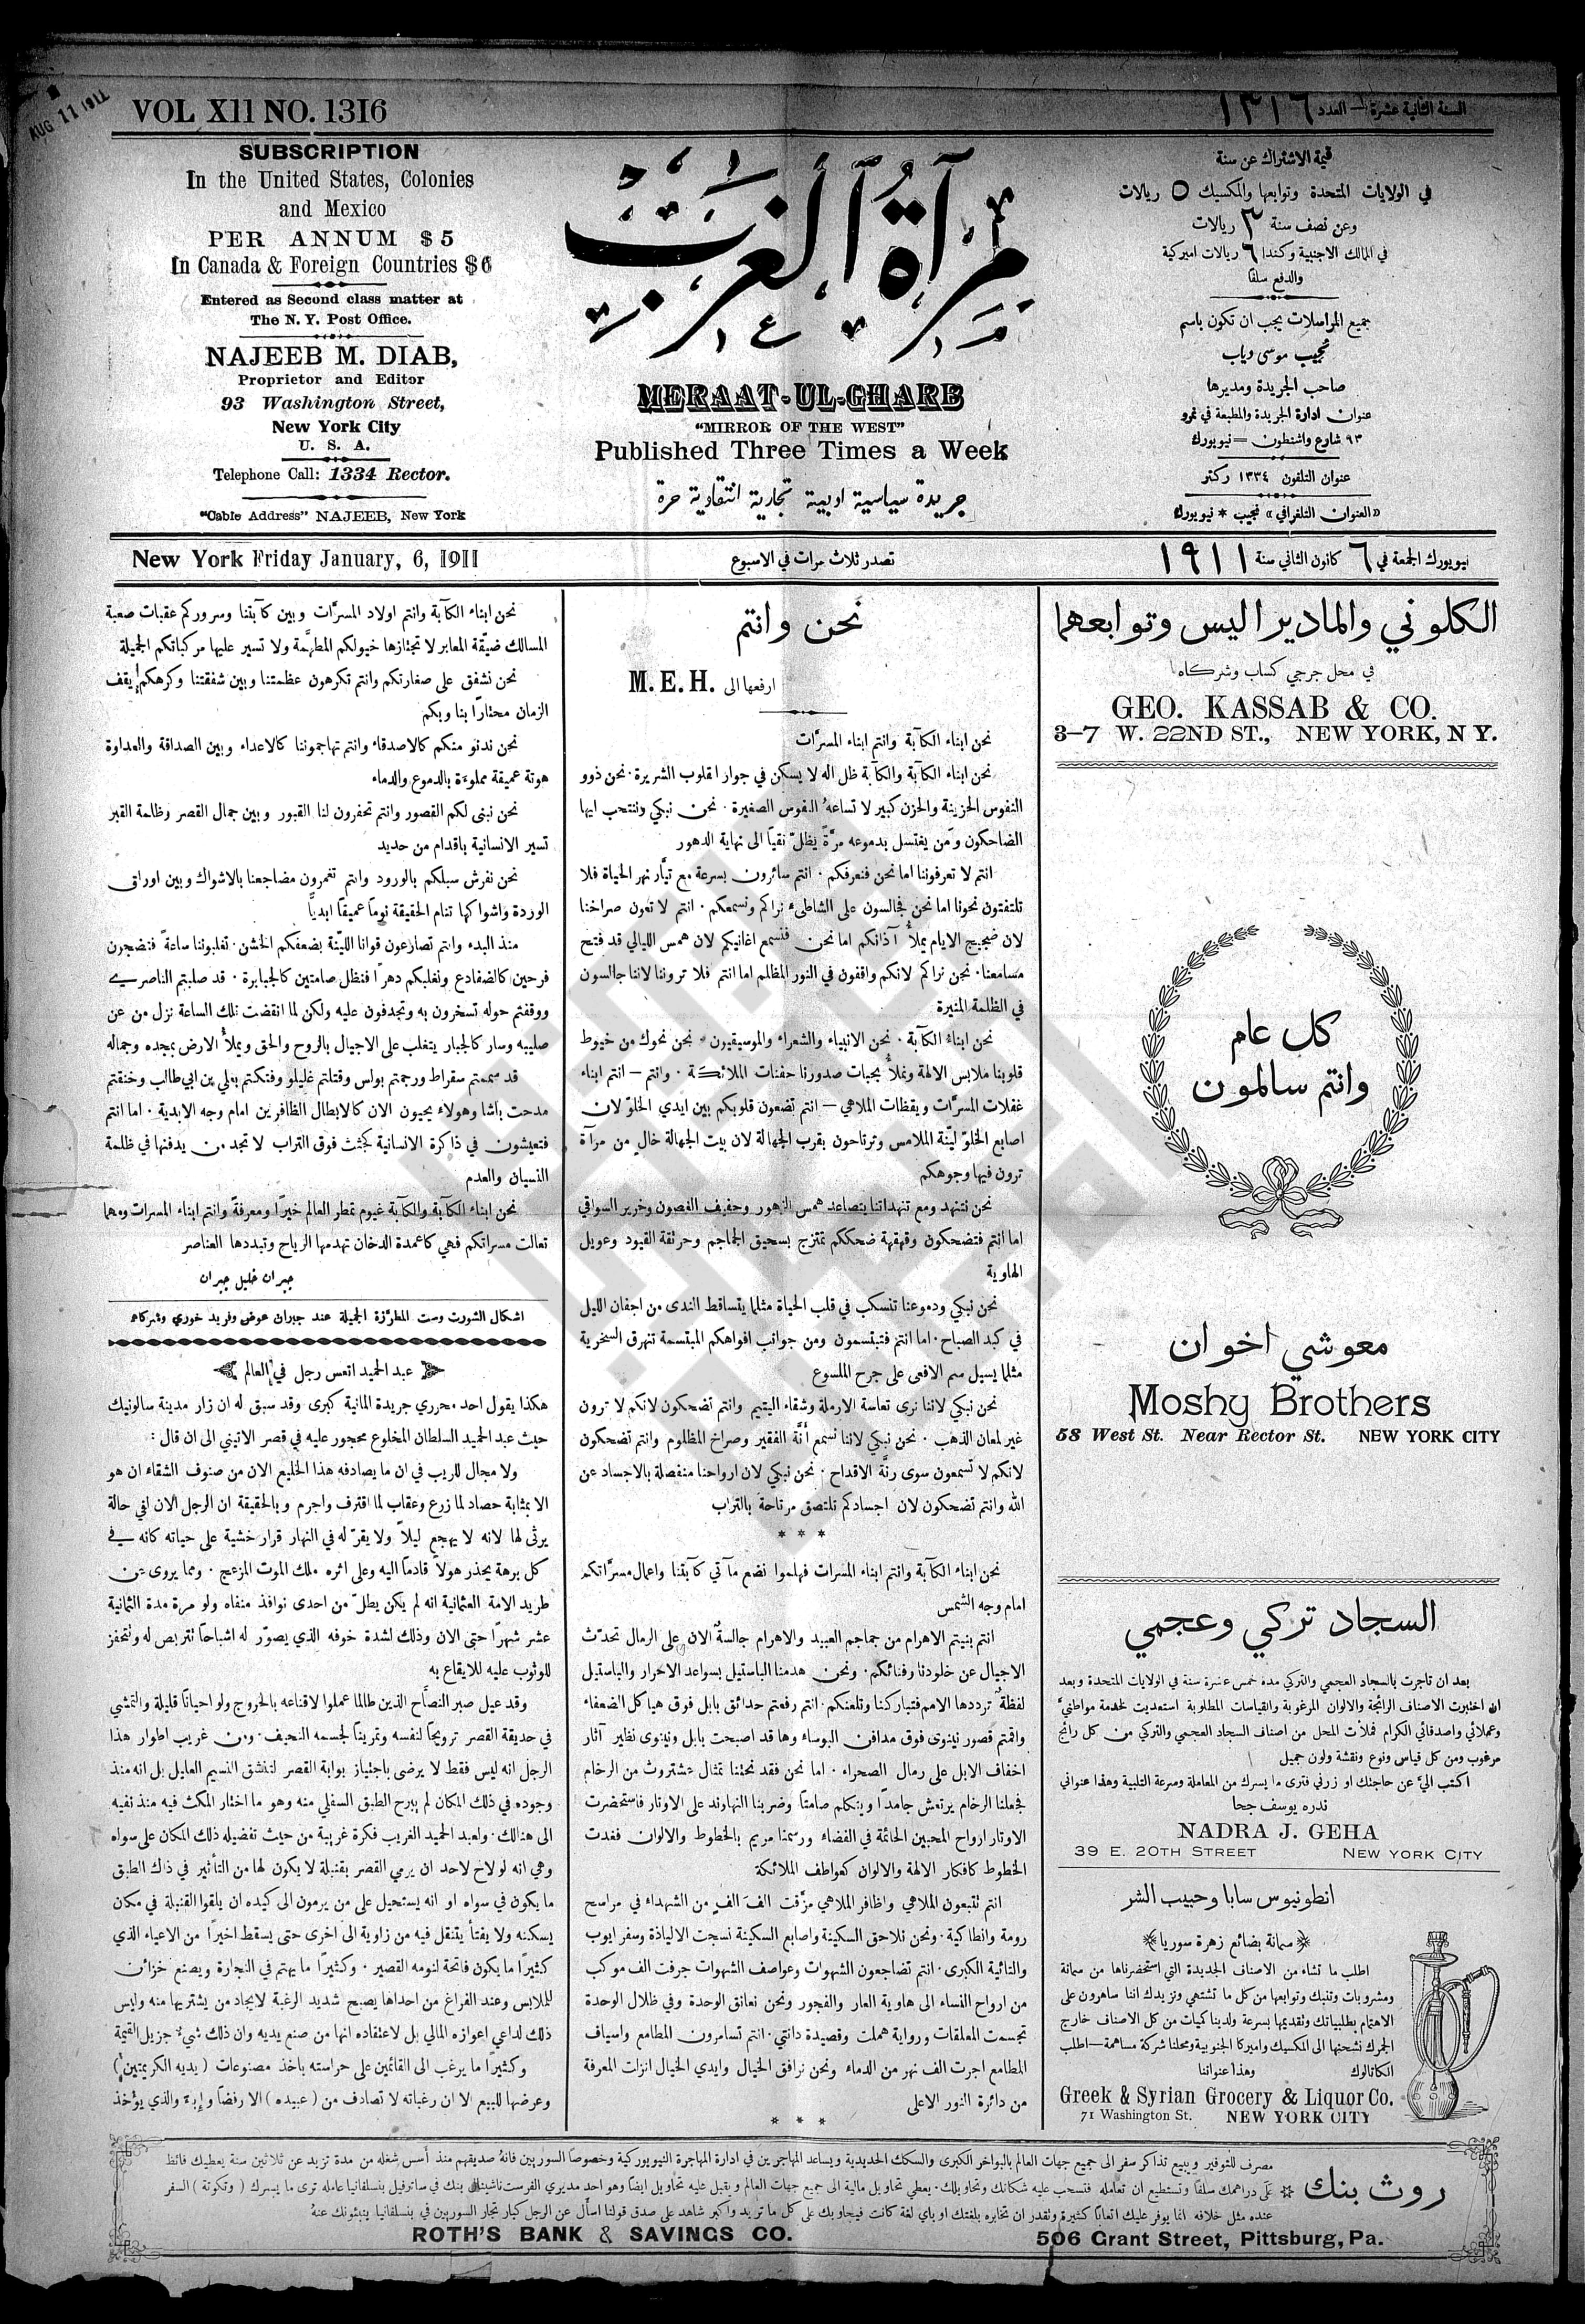 AUG 11 1911
VOL XII NO. 1316
السنة الثانية عشرة — العدد ١٣١٦
SUBSCRIPTION
In the United States, Colonies
and Mexico
PER ANNUM $ 5
In Canada & Foreign Countries $ 6
Entered as Second class matter at
The N. Y. Post Office.
NAJEEB M. DIAB,
Proprietor and Editor
93 Washington Street,
New York City
U. S. A.
Telephone Call: 1334 Rector.
"Cable Address" NAJEEB, New York
مرآة الغرب
MERAAT-UL-GHARB
"MIRROR OF THE WEST"
Published Three Times a Week
جريدة سياسية ادبية تجارية انتقادية حرة
قيمة الاشتراك عن سنة
في الولايات المتحدة وتوابعها والمكسيك ٥ ريالات
وعن نصف سنة ٣ ريالات
في الممالك الاجنبية وكندا ٦ ريالات اميركية
والدفع سلفاً
جميع المراسلات يجب ان تكون باسم
نجيب موسى دياب
صاحب الجريدة ومديرها
عنوان ادارة الجريدة والمطبعة في نمرو
٩٣ شارع واشنطون — نيويورك
عنوان التلفون ١٣٣٤ ركتر
«العنوان التلغرافي» نجيب * نيويورك
New York Friday January, 6, 1911
تصدر ثلاث مرات في الاسبوع
نيويورك الجمعة في ٦ كانون الثاني سنة ١٩١١
الكلوني والمادير اليس وتوابعهما
في محل جرجي كساب وشركاه
GEO. KASSAB & CO.
3–7 W. 22ND ST., NEW YORK, N Y.
كل عام
وانتم سالمون
معوشي اخوان
Moshy Brothers
53 West St. Near Rector St. NEW YORK CITY
السجاد تركي وعجمي
بعد ان تاجرت بالسجاد العجمي والتركي مدة خمس عشرة سنة في الولايات المتحدة وبعد
ان اختبرت الاصناف الرائجة والالوان المرغوبة والقياسات المطلوبة استعديت لخدمة مواطنيَّ
وعملائي واصدقائي الكرام فملأت المحل من اصناف السجاد العجمي والتركي من كل رائج
مرغوب ومن كل قياس ونوع ونقشة ولون جميل
اكتب اليَّ عن حاجتك او زرني فترى ما يسرك من المعاملة وسرعة التلبية وهذا عنواني
ندره يوسف جحا
NADRA J. GEHA
39 E. 20TH STREET NEW YORK CITY
انطونيوس سابا وحبيب الشر
سمانة بضائع زهرة سوريا
اطلب ما تشاء من الاصناف الجديدة التي استحضرناها من سمانة
ومشروبات وتنبك وتوابعها من كل ما تشتهي ونزيدك اننا ساهرون على
الاهتمام بطلبياتك وتقديمها بسرعة ولدينا كيات من كل الاصناف خارج
الجمرك نشحنها الى المكسيك واميركا الجنوبية ومحلنا شركة مساهمة — اطلب
الكاتالوك وهذا عنواننا
Greek & Syrian Grocery & Liquor Co.
71 Washington St. NEW YORK CITY
نحن وانتم
ارفعها الى M. E. H.
نحن ابناء الكآبة وانتم ابناء المسرَّات
نحن ابناء الكآبة والكآبة ظل اله لا يسكن في جوار القلوب الشريرة. نحن ذوو
النفوس الحزينة والحزن كبير لا تساعهُ النفوس الصغيرة. نحن نبكي وننتحب ايها
الضاحكون ومَن يغتسل بدموعه مرَّةً يظلّ نقيًا الى نهاية الدهور
انتم لا تعرفوننا اما نحن فنعرفكم. انتم سائرون بسرعة مع تيَّار نهر الحياة فلا
تلتفتون نحونا اما نحن فجالسون على الشاطىء نراكم ونسمعكم. انتم لا تعون صراخنا
لان ضجيج الايام يملأُ آذانكم اما نحن فنسمع اغانيكم لان همس الليالي قد فتح
مسامعنا. نحن نراكم لانكم واقفون في النور المظلم اما انتم فلا تروننا لاننا جالسون
في الظلمة المنيرة
نحن ابناءُ الكآبة. نحن الانبياء والشعراء والموسيقيون. نحن نحوك من خيوط
قلوبنا ملابس الالهة ونملأُ بحبات صدورنا حفنات الملائكة. وانتم — انتم ابناء
غفلات المسرَّات ويقظات الملاهي — انتم تضعون قلوبكم بين ايدي الخلوّ لان
اصابع الخلوّ ليّنة الملامس وترتاحون بقرب الجهالة لان بيت الجهالة خالٍ من مرآة
ترون فيها وجوهكم
نحن نتنهد ومع تنهداتنا يتصاعد همس الزهور وحفيف الغصون وخرير السواقي
اما انتم فتضحكون وقهقهة ضحككم تمتزج بسحيق الجماجم وحرثقة القيود وعويل
الهاوية
نحن نبكي ودموعنا تنسكب في قلب الحياة مثلما يتساقط الندى من اجفان الليل
في كبد الصباح. اما انتم فتبتسمون ومن جوانب افواهكم المبتسمة تنهرق السخرية
مثلما يسيل سم الافعى على جرح الملسوع
نحن نبكي لاننا نرى تعاسة الارملة وشقاء اليتيم وانتم تضحكون لانكم لا ترون
غير لمعان الذهب. نحن نبكي لاننا نسمع أنَّة الفقير وصراخ المظلوم وانتم تضحكون
لانكم لا تسمعون سوى رنَّة الاقداح. نحن نبكي لان ارواحنا منفصلة بالاجساد عن
الله وانتم تضحكون لان اجسادكم تلتصق مرتاحة بالتراب
* * *
نحن ابناء الكآبة وانتم ابناء المسرات فهلموا نضع مآتي كآبتنا واعمال مسرَّاتكم
امام وجه الشمس
انتم بنيتم الاهرام من جماجم العبيد والاهرام جالسةٌ الان على الرمال تحدّث
الاجيال عن خلودنا وفنائكم. ونحن هدمنا الباستيل بسواعد الاحرار والباستيل
لفظةٌ ترددها الامم فتباركنا وتلعنكم. انتم رفعتم حدائق بابل فوق هياكل الضعفاء
واقمتم قصور نينوى فوق مدافن البوساء وها قد اصبحت بابل ونينوى نظير آثار
اخفاف الابل على رمال الصحراء. اما نحن فقد نحتنا تمثال عشتروت من الرخام
فجعلنا الرخام يرتعش جامداً ويتكلم صامتاً وضربنا النهاوند على الاوتار فاستحضرت
الاوتار ارواح المحبين الحائمة في الفضاء ورسمنا مريم بالخطوط والالوان فغدت
الخطوط كافكار الالهة والالوان كعواطف الملائكة
انتم تتبعون الملاهي واظافر الملاهي مزَّقت الفَ الفٍ من الشهداء في مراسح
رومة وانطاكية. ونحن نلاحق السكينة واصابع السكينة نسجت الالياذة وسفر ايوب
والتائية الكبرى. انتم تضاجعون الشهوات وعواصف الشهوات جرفت الف موكب
من ارواح النساء الى هاوية العار والفجور ونحن نعانق الوحدة وفي ظلال الوحدة
تجسمت المعلقات ورواية هملت وقصيدة دانتي. انتم تسامرون المطامع واسياف
المطامع اجرت الف نهر من الدماء ونحن نرافق الخيال وايدي الخيال انزلت المعرفة
من دائرة النور الاعلى
* * *
نحن ابناء الكآبة وانتم اولاد المسرَّات وبين كآبتنا وسروركم عقبات صعبة
المسالك ضيّقة المعابر لا تجتازها خيولكم المطهَّمة ولا تسير عليها مركباتكم الجميلة
نحن نشفق على صغارتكم وانتم تكرهون عظمتنا وبين شفقتنا وكرهكم يقف
الزمان محتاراً بنا وبكم
نحن ندنو منكم كالاصدقاء وانتم تهاجموننا كالاعداء وبين الصداقة والعداوة
هوتة عميقة مملوءة بالدموع والدماء
نحن نبنى لكم القصور وانتم تحفرون لنا القبور وبين جمال القصر وظلمة القبر
تسير الانسانية باقدام من حديد
نحن نفرش سبلكم بالورود وانتم تغمرون مضاجعنا بالاشواك وبين اوراق
الوردة واشواكها تنام الحقيقة نوماً عميقاً ابديًّا
منذ البدء وانتم تصارعون قوانا الليّنة بضعفكم الخشن. تغلبوننا ساعةً فتضجون
فرحين كالضفادع ونغلبكم دهراً فنظل صامتين كالجبابرة. قد صلبتم الناصري
ووقفتم حوله تسخرون به وتجدفون عليه ولكن لما انقضت تلك الساعة نزل من عن
صليبه وسار كالجبار يتغلب على الاجيال بالروح والحق ويملأُ الارض بمجده وجماله
قد سممتم سقراط ورجمتم بولس وقتلتم غليليو وفتكتم بعلي بن ابي طالب وخنقتم
مدحت باشا وهولاء يحيون الان كالابطال الظافرين امام وجه الابدية. اما انتم
فتعيشون في ذاكرة الانسانية كجثث فوق التراب لا تجد من يدفنها في ظلمة
النسيان والعدم
نحن ابناء الكآبة والكآبة غيوم تمطر العالم خيراً ومعرفةً وانتم ابناء المسرات ومهما
تعالت مسراتكم فهي كاعمدة الدخان تهدمها الرياح وتبددها العناصر
جبران خليل جبران
اشكال الشورت وست المطرَّزة الجميلة عند جبران عوض وفريد خوري وشركاه
عبد الحميد اتعس رجل في العالم
هكذا يقول احد محرري جريدة المانية كبرى وقد سبق له ان زار مدينة سالونيك
حيث عبد الحميد السلطان المخلوع محجور عليه في قصر الاتيني الى ان قال:
ولا مجال للريب في ان ما يصادفه هذا الخليع الان من صنوف الشقاء ان هو
الا بمثابة حصاد لما زرع وعقاب لما اقترف واجرم وبالحقيقة ان الرجل الان لفي حالة
يرثى لها لانه لا يهجع ليلاً ولا يقرّ له في النهار قرار خشية على حياته كانه في
كل برهة يحذر هولاً قادماً اليه وعلى اثره ملك الموت المزعج. ومما يروى عن
طريد الامة العثمانية انه لم يكن يطلّ من احدى نوافذ منفاه ولو مرة مدة الثمانية
عشر شهراً حتى الان وذلك لشدة خوفه الذي يصوّر له اشباحاً تتربص له وتتحفز
للوثوب عليه للايقاع به
وقد عيل صبر النصَّاح الذين طالما عملوا لاقناعه بالخروج ولو احياناً قليلة والتمشي
في حديقة القصر ترويحاً لنفسه وتمريناً لجسمه النحيف. ومن غريب اطوار هذا
الرجل انه ليس فقط لا يرضى باجتياز بوابة القصر لتنشق النسيم العليل بل انه منذ
وجوده في ذلك المكان لم يبرح الطبق السفلي منه وهو ما اختار المكث فيه منذ نفيه
الى هنالك. ولعبد الحميد الغريب فكرة غريبة من حيث تفضيله ذلك المكان على سواه
وهي انه لو لاح لاحد ان يرمي القصر بقنبلة لا يكون لها من التأثير في ذاك الطبق
ما يكون في سواه او انه يستحيل على من يرمون الى كيده ان يلقوا القنبلة في مكان
يسكنه ولا يفتأ يتنقل فيه من زاوية الى اخرى حتى يسقط اخيراً من الاعياء الذي
كثيراً ما يكون فاتحة لنومه القصير. وكثيراً ما يهتم في النجارة ويصنع خزائن
للملابس وعند الفراغ من احداها يصبح شديد الرغبة لايجاد من يشتريها منه وليس
ذلك لداعي اعوازه المالي بل لاعتقاده انها من صنع يديه وان ذلك شيء جزيل القيمة
وكثيراً ما يرغب الى القائمين على حراسته باخذ مصنوعات (يديه الكريمتين)
وعرضها للبيع الا ان رغباته لا تصادف من (عبيده) الا رفضاً وإباء والذي يؤخذ
روث بنك
مصرف للتوفير ويبيع تذاكر سفر الى جميع جهات العالم بالبواخر الكبرى والسكك الحديدية ويساعد المهاجرين في ادارة المهاجرة النيويوركية وخصوصاً السوريين فانهُ صديقهم منذ أسس شغله من مدة تزيد عن ثلاثين سنة يعطيك فائظ
على دراهمك سلفاً وتستطيع ان تعامله فتسحب عليه شكاتك وتحاويلك. يعطي تحاويل مالية الى جميع جهات العالم ويقبل عليه تحاويل ايضاً وهو احد مديري الفرست ناشينال بنك في ساترفيل بنسلفانيا عامله ترى ما يسرك (وتكوتة) السفر
عنده مثل خلافه انما يوفر عليك اتعاباً كثيرة وتقدر ان تخابره بلغتك او باي لغة كانت فيجاوبك على كل ما تريد واكبر شاهد على صدق قولنا اسأل عن الرجل كبار تجار السوريين في بنسلفانيا ينبئونك عنهُ
ROTH'S BANK & SAVINGS CO. 506 Grant Street, Pittsburg, Pa.